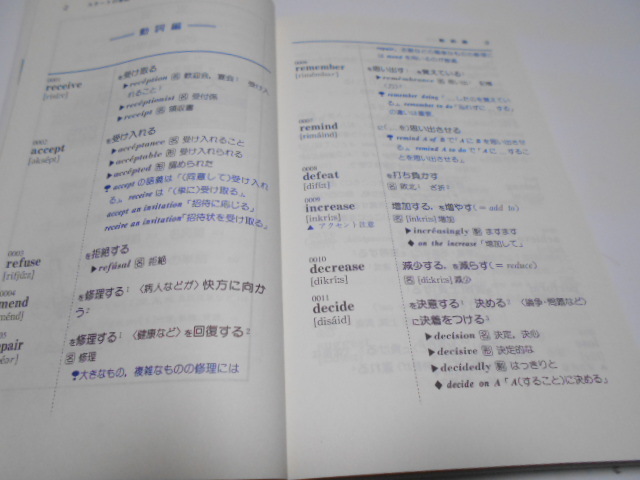 動詞編
0001
receive
を受け取る
▶recéption 名 歓迎会, 宴会:
▶recéptionist 名 受付係
▶receipt 名 領収書
0002
accept
[əksépt]
を受け入れる
▶accéptance 名 受け入れること
▶accéptable 形 受け入れられる
▶accépted 形 認められた
accept の語義は「(同意して)受け入れ
る」, receive は「(単に)受け取る」.
accept an invitation「招待に応じる」
receive an invitation「招待状を受け取る」
0003
refuse
[rifjúːz]
を拒絶する
▶refúsal 名 拒絶
0004
mend
を修理する:〈病人などが〉快方に向か
う:
pair
を修理する:〈健康など〉を回復する:
名 修理
大きなもの, 複雑なものの修理には
動詞編 3
0006
remember
を思い出す: を覚えている:
▶remémbrance 名
remember doing
remember to do
の違いは重要.
0007
remind
[rimáind]
に(…を)思い出させる
remind A of B で「A に B を思い出させ
る」, remind A to do で「A に…するこ
とを思い出させる」.
0008
defeat
[difíːt]
を打ち負かす
名 敗北:
0009
increase
[inkríːs]
▲アクセント注意
増加する, を増やす(= add to)
[ínkriːs] 増加
▶incréasingly 副 ますます
◆ on the increase「増加して」
0010
decrease
[dikríːs]
減少する, を減らす(= reduce)
名 [díːkriːs] 減少
0011
decide
[disáid]
を決意する: 決める:〈論争・問題など〉
に決着をつける:
▶decision 名 決定, 決心
▶decisive 形 決定的な
▶decidedly 副 はっきりと
◆ decide on A「A(すること)に決める」